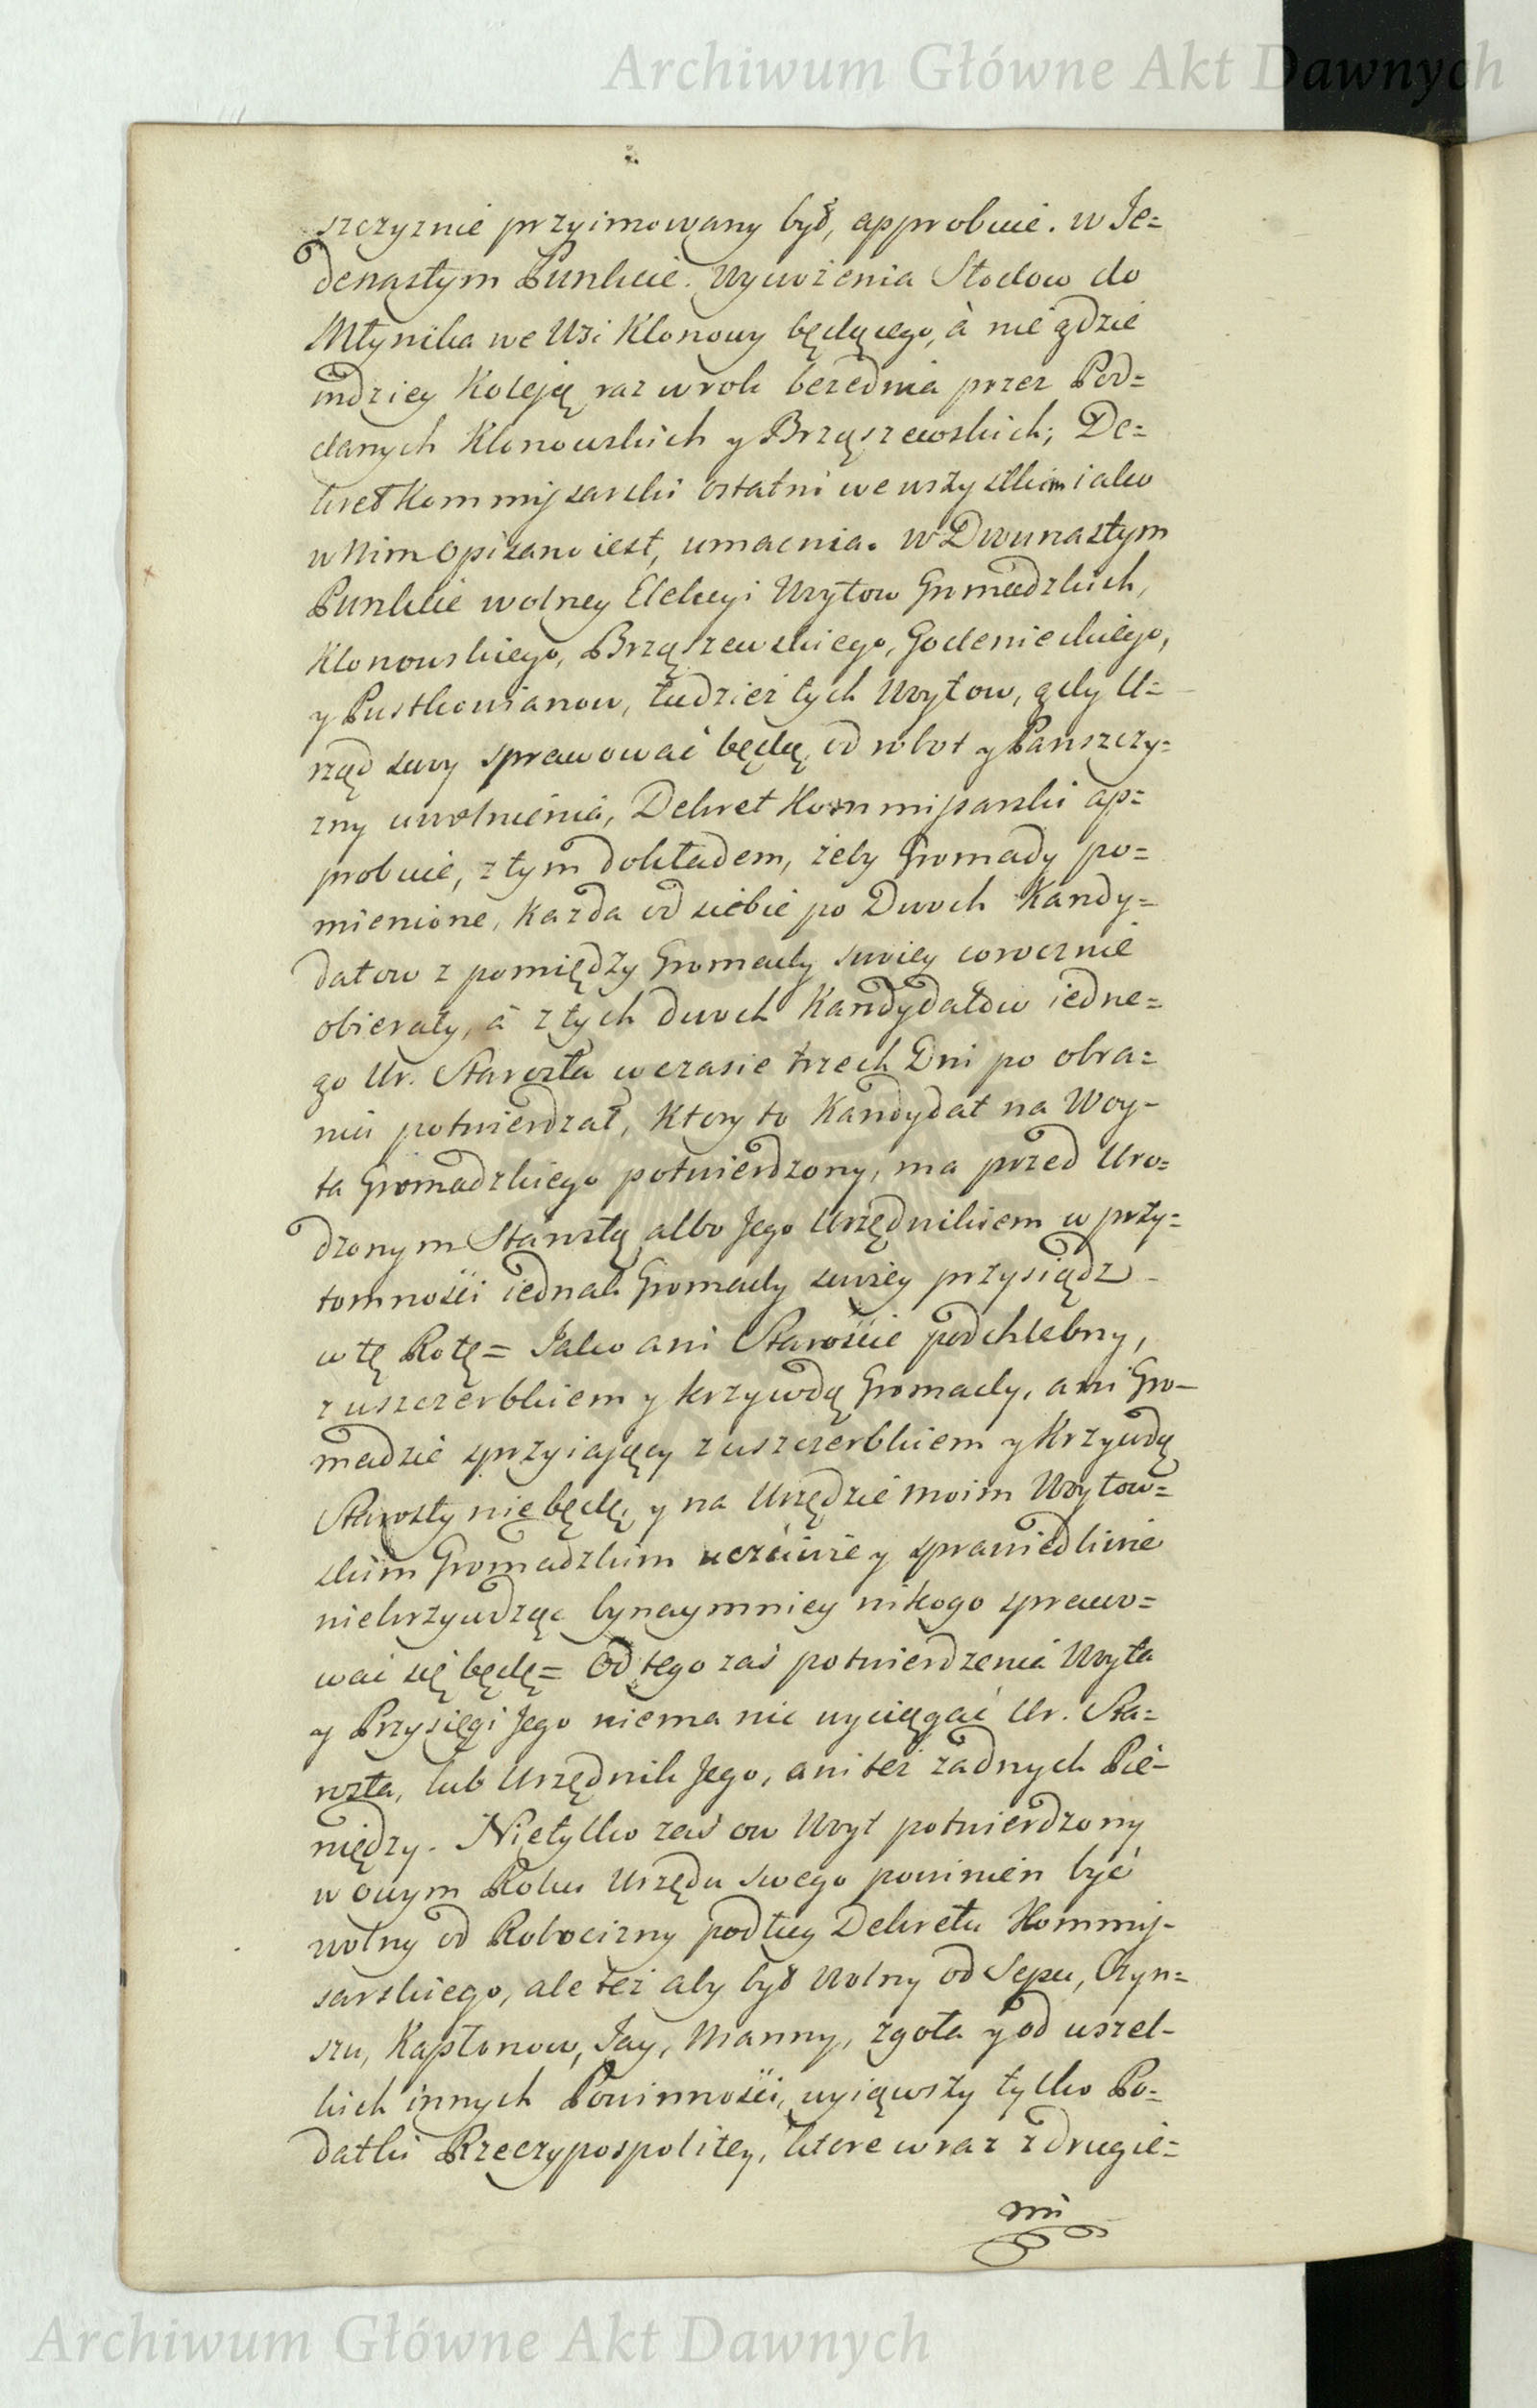 Archiwum Główne Akt Dawnych
szczyznie przyimowany był, approbuie. w Je=
denastym Punkcie. Wywozenia Słodow do
Młynika we Wsi Klonowy będącego, à nie gdzie
indziey Koleją raz w rok bezednia przez Pod=
danych Klonowskich y Brząszewskich; De=
kret Kommissarski ostatni we wszystkim iako
w Nim opisano iest, umacnia. W Dwunastym
Punkcie wolney Elekcyi Woytow Gromadzkich,
Klonowskiego, Brząszewskiego, Godenieckiego,
y Pustkowianow, tudziez tych Woytow, gdy U=
rząd swoy sprawować będą, od robot y Panszczy=
zny uwolnienia, Dekret Kommissarski ap=
probuie, z tym dokładem, żeby Gromady po=
mienione, Kazda od siebie po Dwoch Kandy=
datow z pomiędzy Gromady swoiey corocznie
obierały, à z tych dwoch Kandydatow iedne=
go Ur. Starosta w czasie trzech Dni po obra=
niu potwierdzał, Ktory to Kandydat na Woy-
ta Gromadzkiego potwierdzony, ma przed Uro=
dzonym Starostą albo Jego Urzędnikiem w przy=
tomności iednak Gromady swoiey przysiądz
w tę Rotę= Jako ani Starościie podchlebny,
z uszczerbkiem y krzywdą Gromady, ani Gro-
madzie sprzyiaiący z uszczerbkiem y Krzywdą
Starosty nie będę, y na Urzędzie moim Woytow=
skim Gromadzkim uczciwie y sprawiedliwie
niekrzywdząc bynaymniey nikogo sprawo=
wać się będę= Od tego zaś potwierdzenia Woyta
y Przysięgi Jego niema nic wyciągać Ur. Sta=
rosta, lub Urzędnik Jego, ani też żadnych Pie-
niędzy. Nietylko zaś ow Woyt potwierdzony
w owym Roku Urzędu swego powinien być
wolny od Robocizny podług Dekretu Kommis-
sarskiego, ale też aby był Wolny od Sepu, Czyn=
szu, Kapłonow, Jay, Manny, zgoła y od wszel-
kich innych Powinności, wyiąwszy tylko Po=
datki Rzeczypospolitey, ktore wraz z drugie=
mi
Archiwum Główne Akt Dawnych